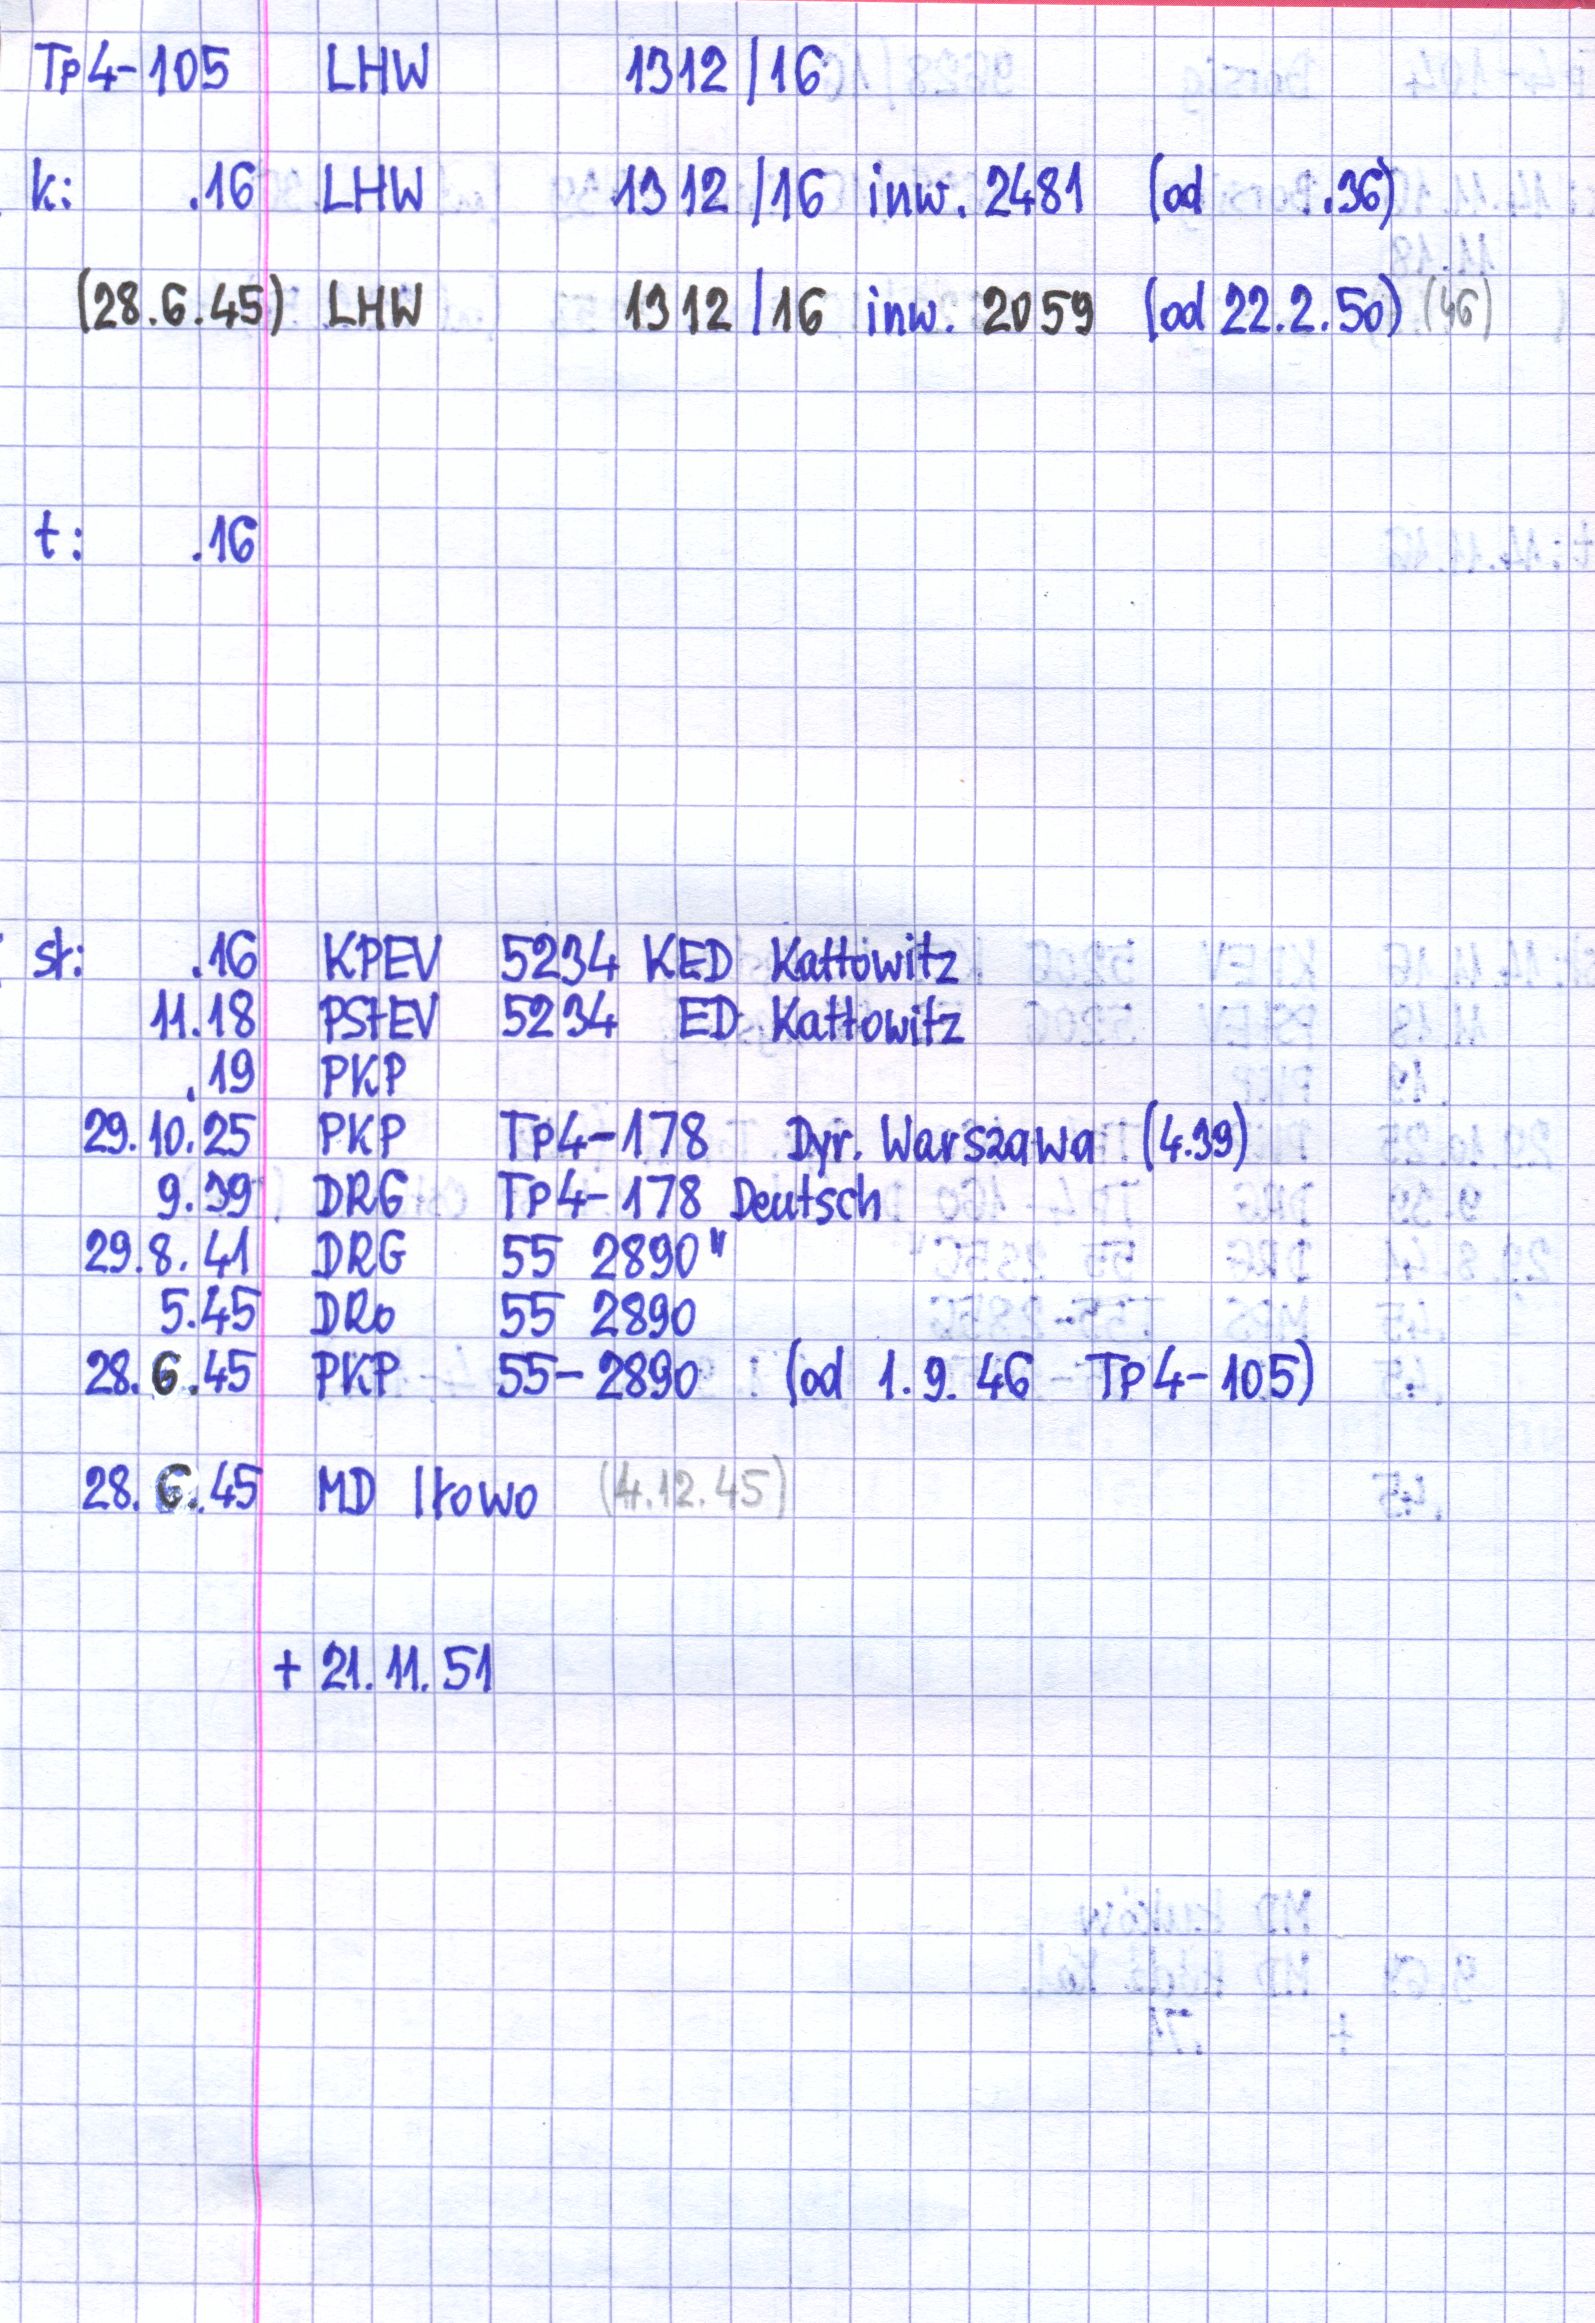 Tp4-105 LHW 1312/16
k: .16 LHW 1312/16 inw. 2481 (od .36)
(28.6.45) LHW 1312/16 inw. 2059 (od 22.2.50) (46)
t: .16
st: .16 KPEV 5234 KED Kattowitz
11.18 PStEV 5234 ED Kattowitz
.19 PKP
29.10.25 PKP Tp4-178 Dyr. Warszawa (4.39)
9.39 DRG Tp4-178 Deutsch
29.8.41 DRG 55 2890"
5.45 DRo 55 2890
28.6.45 PKP 55-2890 (od 1.9.46 Tp4-105)
28.6.45 MD Iłowo (4.12.45)
+ 21.11.51